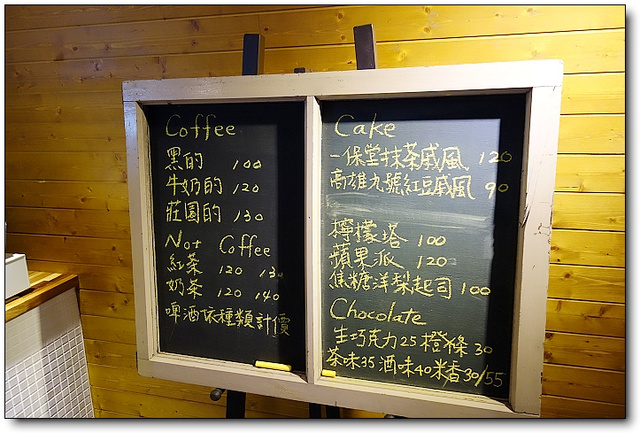 Coffee
黑的 100
牛奶的 120
莊園的 130
Not Coffee
紅茶 120 130
奶茶 120 140
啤酒依種類計價
Cake
一保堂抹茶戚風 120
高雄九號紅豆戚風 90
檸檬塔 100
蘋果派 120
焦糖洋梨起司 100
Chocolate
生巧克力25 橙條 30
茶味35 酒味40 米香30/55